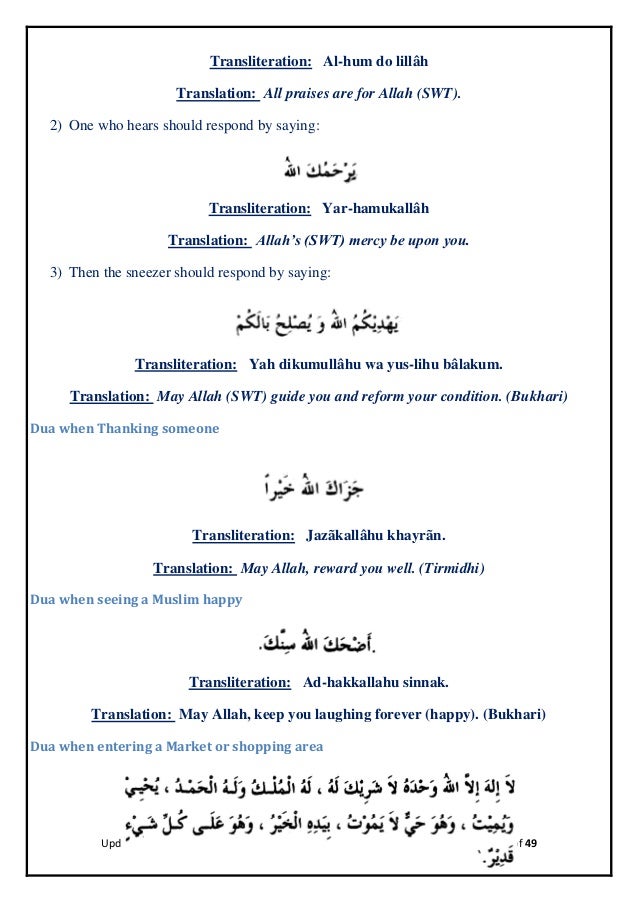 Transliteration: Al-hum do lillâh
Translation: All praises are for Allah (SWT).
2) One who hears should respond by saying:
يَرْحَمُكَ اللهُ
Transliteration: Yar-hamukallâh
Translation: Allah's (SWT) mercy be upon you.
3) Then the sneezer should respond by saying:
يَهْدِيْكُمُ اللهُ وَ يُصْلِحُ بَالَكُمْ
Transliteration: Yah dikumullâhu wa yus-lihu bâlakum.
Translation: May Allah (SWT) guide you and reform your condition. (Bukhari)
Dua when Thanking someone
جَزَاكَ اللهُ خَيْراً
Transliteration: Jazãkallâhu khayrãn.
Translation: May Allah, reward you well. (Tirmidhi)
Dua when seeing a Muslim happy
.أَضْحَكَ اللهُ سِنَّكَ.
Transliteration: Ad-hakkallahu sinnak.
Translation: May Allah, keep you laughing forever (happy). (Bukhari)
Dua when entering a Market or shopping area
لاَ إِلهَ إِلاَّ اللهُ وَحْدَهُ لاَ شَرِيْكَ لَهُ ، لَهُ الْمُلْكُ وَلَهُ الْحَمْدُ ، يُحْيِيْ
وَيُمِيْتُ ، وَهُوَ حَيٌّ لاَ يَمُوْتُ ، بِيَدِهِ الْخَيْرُ ، وَهُوَ عَلَى كُلِّ شَيْءٍ
قَدِيْرٌ.
Upd f 49